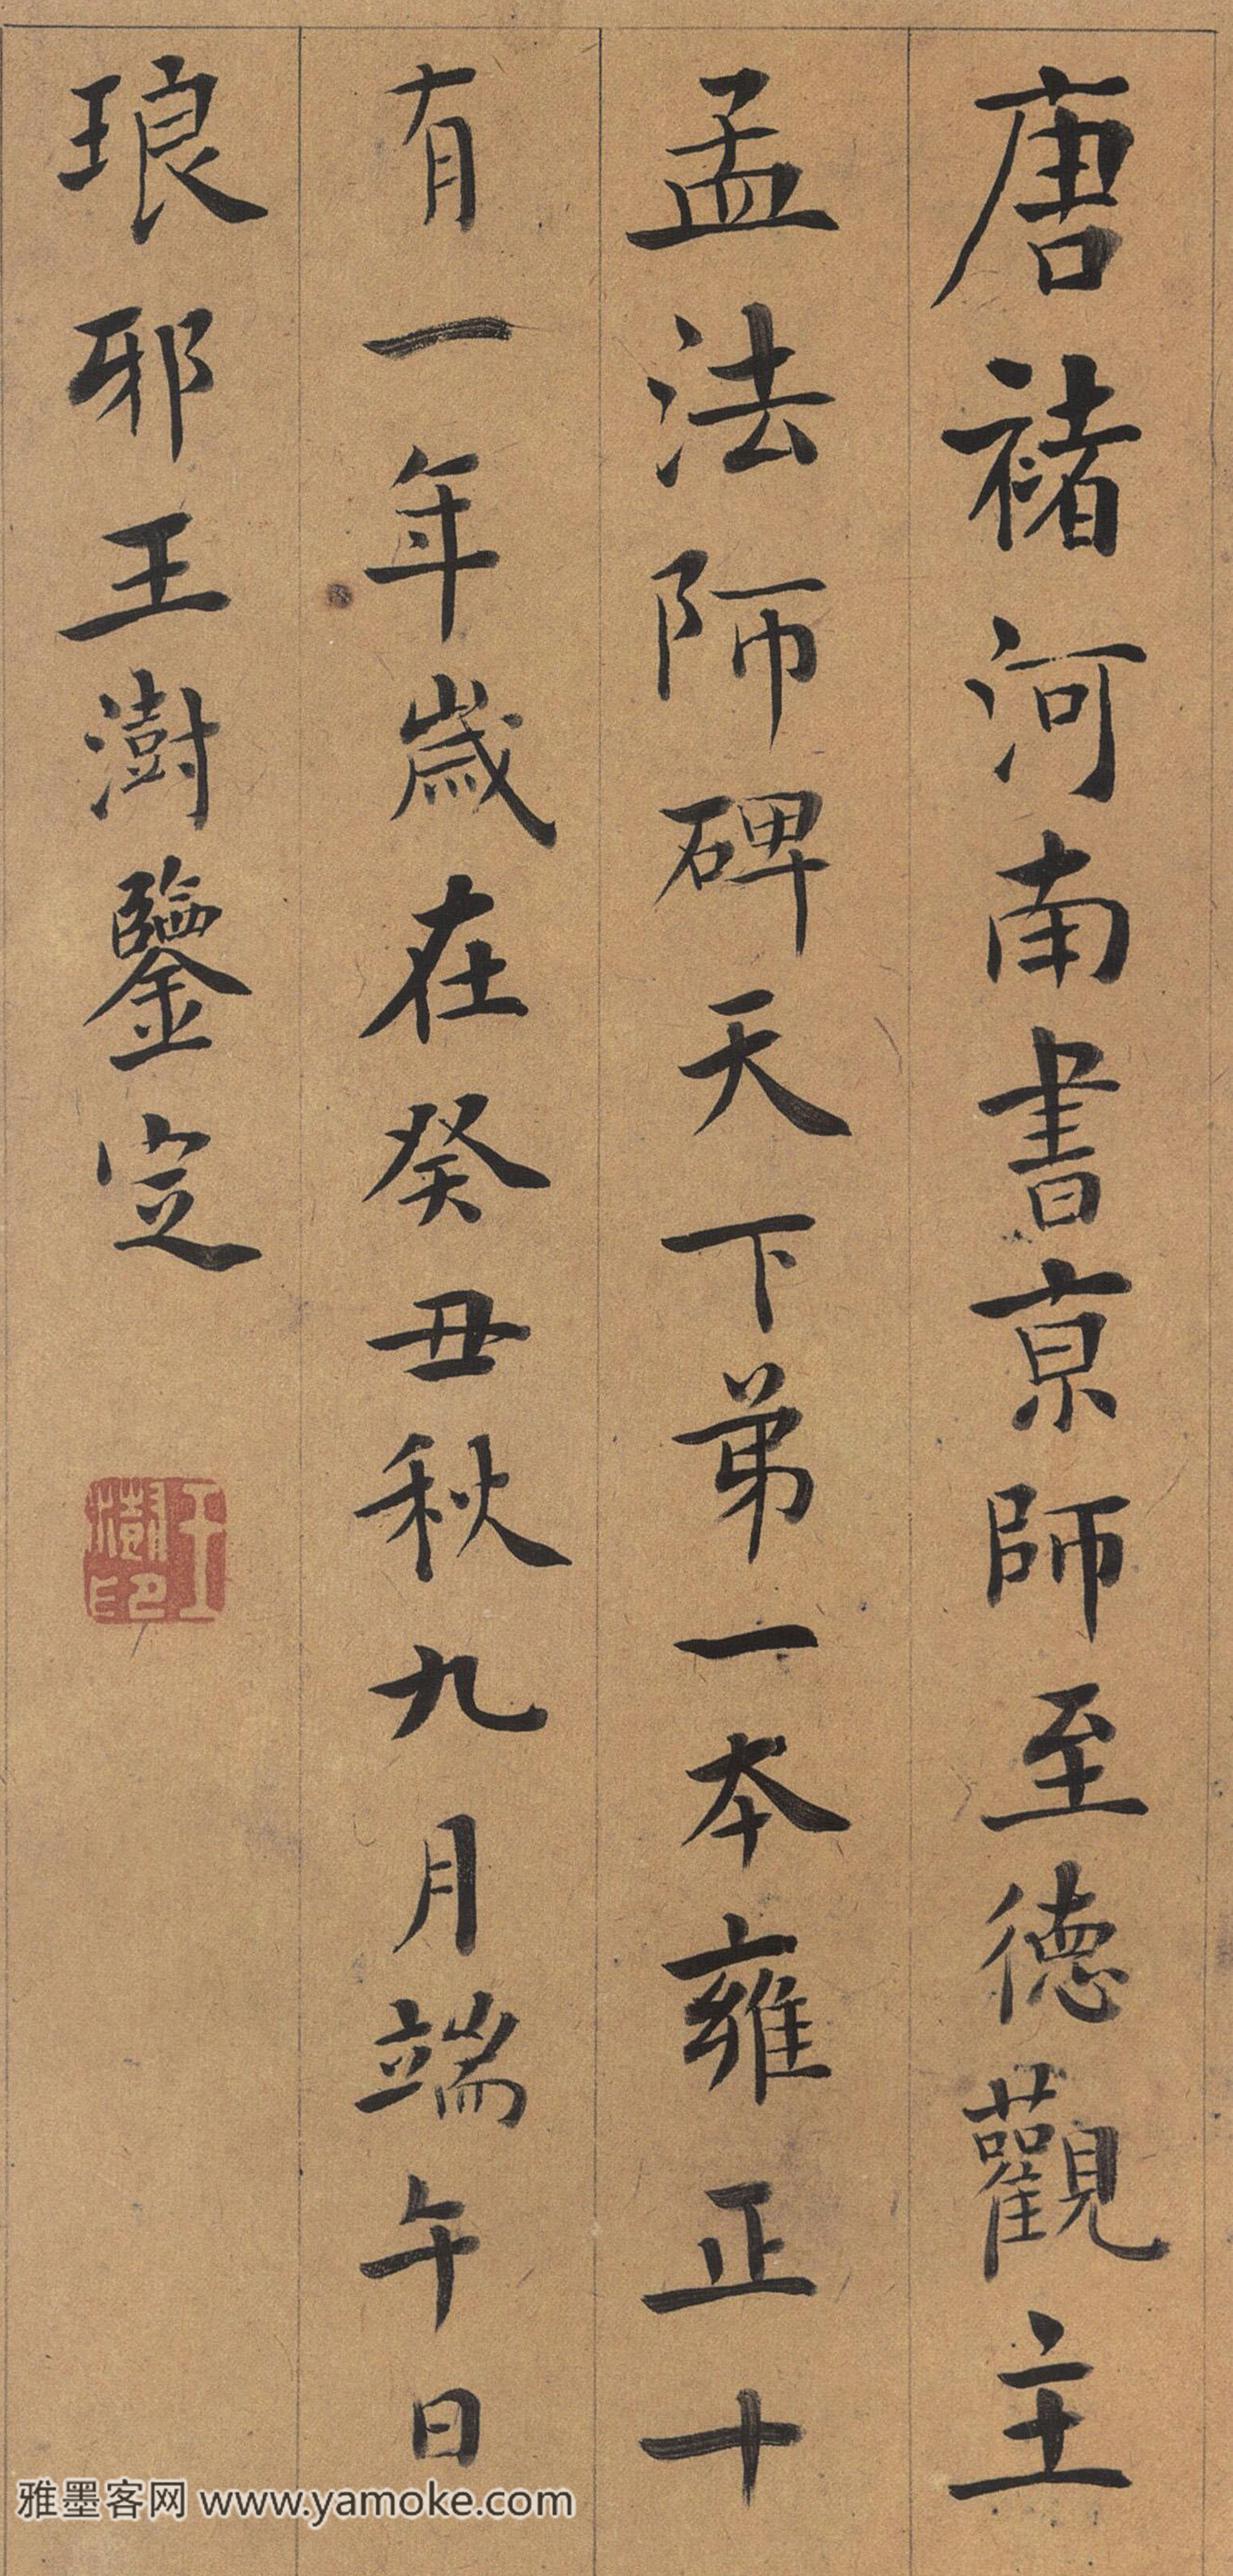 唐褚河南書京師至德觀主
孟法師碑天下弟一本雍正十
有一年歲在癸丑秋九月端午日
琅邪王澍鑒定
王澍印
雅墨客网 www.yamoke.com